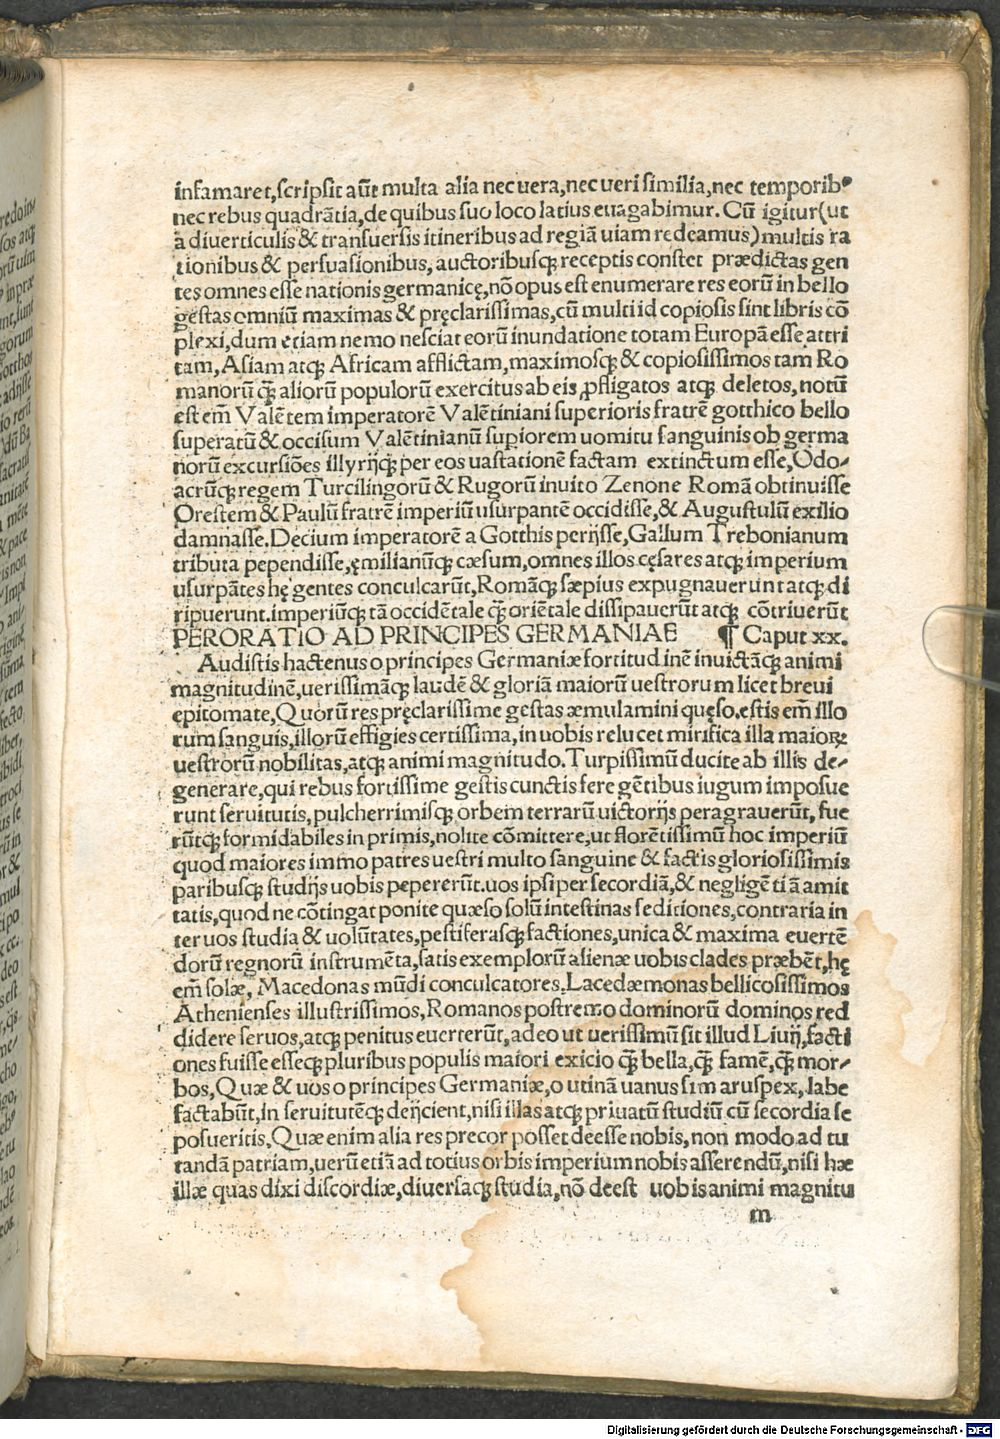 infamaret,scripsit aūt multa alia nec uera,nec ueri similia,nec temporibꝰ
nec rebus quadrātia,de quibus suo loco latius euagabimur. Cū igitur(ut
a diuerticulis & transuersis itineribus ad regiā uiam redeamus)multis ra
tionibus & persuasionibus, auctoribusqꝫ receptis constet prædictas gen
tes omnes esse nationis germanicę,nō opus est enumerare res eorū in bello
gestas omniū maximas & pręclarissimas,cū multi id copiosis sint libris cō
plexi,dum etiam nemo nesciat eorū inundatione totam Europā esse attri
tam, Asiam atqꝫ Africam afflictam,maximosqꝫ & copiosissimos tam Ro
manorū qꝫ̄ aliorū populorū exercitus ab eis ꝓfligatos atqꝫ deletos, notū
est em̄ Valētem imperatorē Valētiniani superioris fratrē gotthico bello
superatū & occisum Valētinianū supiorem uomitu sanguinis ob germa
norū excursiōes illyrijqꝫ per eos uastationē factam extinctum esse,Odo-
acrūqꝫ regem Turcilingorū & Rugorū inuito Zenone Romā obtinuisse
Orestem & Paulū fratrē imperiū usurpantē occidisse,& Augustulū exilio
damnasse.Decium imperatorē a Gotthis perijsse,Gallum Trebonianum
tributa pependisse,ęmilianūqꝫ cæsum,omnes illos cęsares atqꝫ imperium
usurpātes hę gentes conculcarūt,Romāqꝫ sæpius expugnauerunt atqꝫ di
ripuerunt.imperiūqꝫ tā occidētale qꝫ̄ oriētale dissipauerūt atqꝫ cōtriuerūt
PERORATIO AD PRINCIPES GERMANIAE ¶ Caput xx.
Audistis hactenus o principes Germaniæ fortitudinē inuictāqꝫ animi
magnitudinē,uerissimāqꝫ laudē & gloriā maiorū uestrorum licet breui
epitomate,Quorū res pręclarissime gestas æmulamini quęso.estis em̄ illo
rum sanguis,illorū effigies certissima,in uobis relucet mirifica illa maioꝝ
uestrorū nobilitas,atqꝫ animi magnitudo.Turpissimū ducite ab illis de-
generare,qui rebus fortissime gestis cunctis fere gētibus iugum imposue
runt seruitutis, pulcherrimisqꝫ orbem terrarū uictorijs peragrauerūt, fue
rūtqꝫ formidabiles in primis,nolite cōmittere,ut florētissimū hoc imperiū
quod maiores immo patres uestri multo sanguine & factis gloriosissimis
paribusqꝫ studijs uobis pepererūt.uos ipsi per secordiā,& negligētiā amit
tatis,quod ne cōtingat ponite quæso solū intestinas seditiones,contraria in
ter uos studia & uolūtates,pestiferasqꝫ factiones,unica & maxima euertē
dorū regnorū instrumēta,satis exemplorū alienæ uobis clades præbēt,hę
em̄ solæ, Macedonas mūdi conculcatores.Lacedæmonas bellicosissimos
Athenienses illustrissimos,Romanos postremo dominorū dominos red
didere seruos,atqꝫ penitus euerterūt,adeo ut uerissimū sit illud Liuij,facti
ones fuisse esseqꝫ pluribus populis maiori exicio qꝫ̄ bella,qꝫ̄ famē,qꝫ̄ mor-
bos,Quæ & uos o principes Germaniæ,o utinā uanus sim aruspex,labe
factabūt,in seruitutēqꝫ deijcient,nisi illas atqꝫ priuatū studiū cū secordia se
posueritis,Quæ enim alia res precor posset deesse nobis, non modo ad tu
tandā patriam,uerū etiā ad totius orbis imperium nobis asserendū,nisi hæ
illæ quas dixi discordiæ,diuersaqꝫ studia,nō deest uobis animi magnitu
m
Digitalisierung gefördert durch die Deutsche Forschungsgemeinschaft - DFG